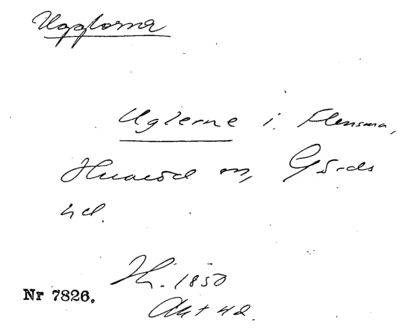 Ugglorna
Uglerne i Flensma,
Hvaröd m, Gärds
hd.
H. 1850
Nr 7826. Akt 42.